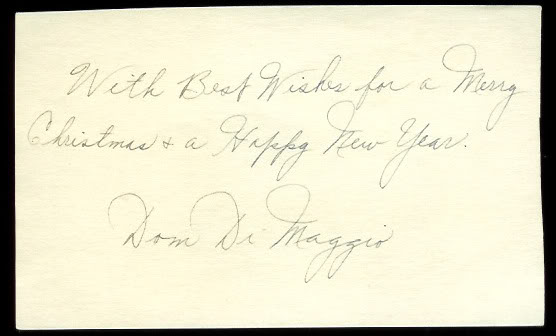 With Best Wishes for a Merry
Christmas & a Happy New Year.
Dom Di Maggio